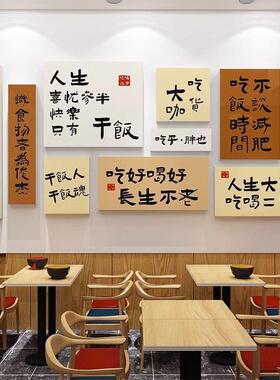 識食物者為俊杰
人生
喜忧參半
快樂
只有
干飯
吃貨
大咖
吃乎·胖也
不談減肥
吃飯時間
干飯人
干飯魂
吃好喝好
長生不老
人生大
吃喝二